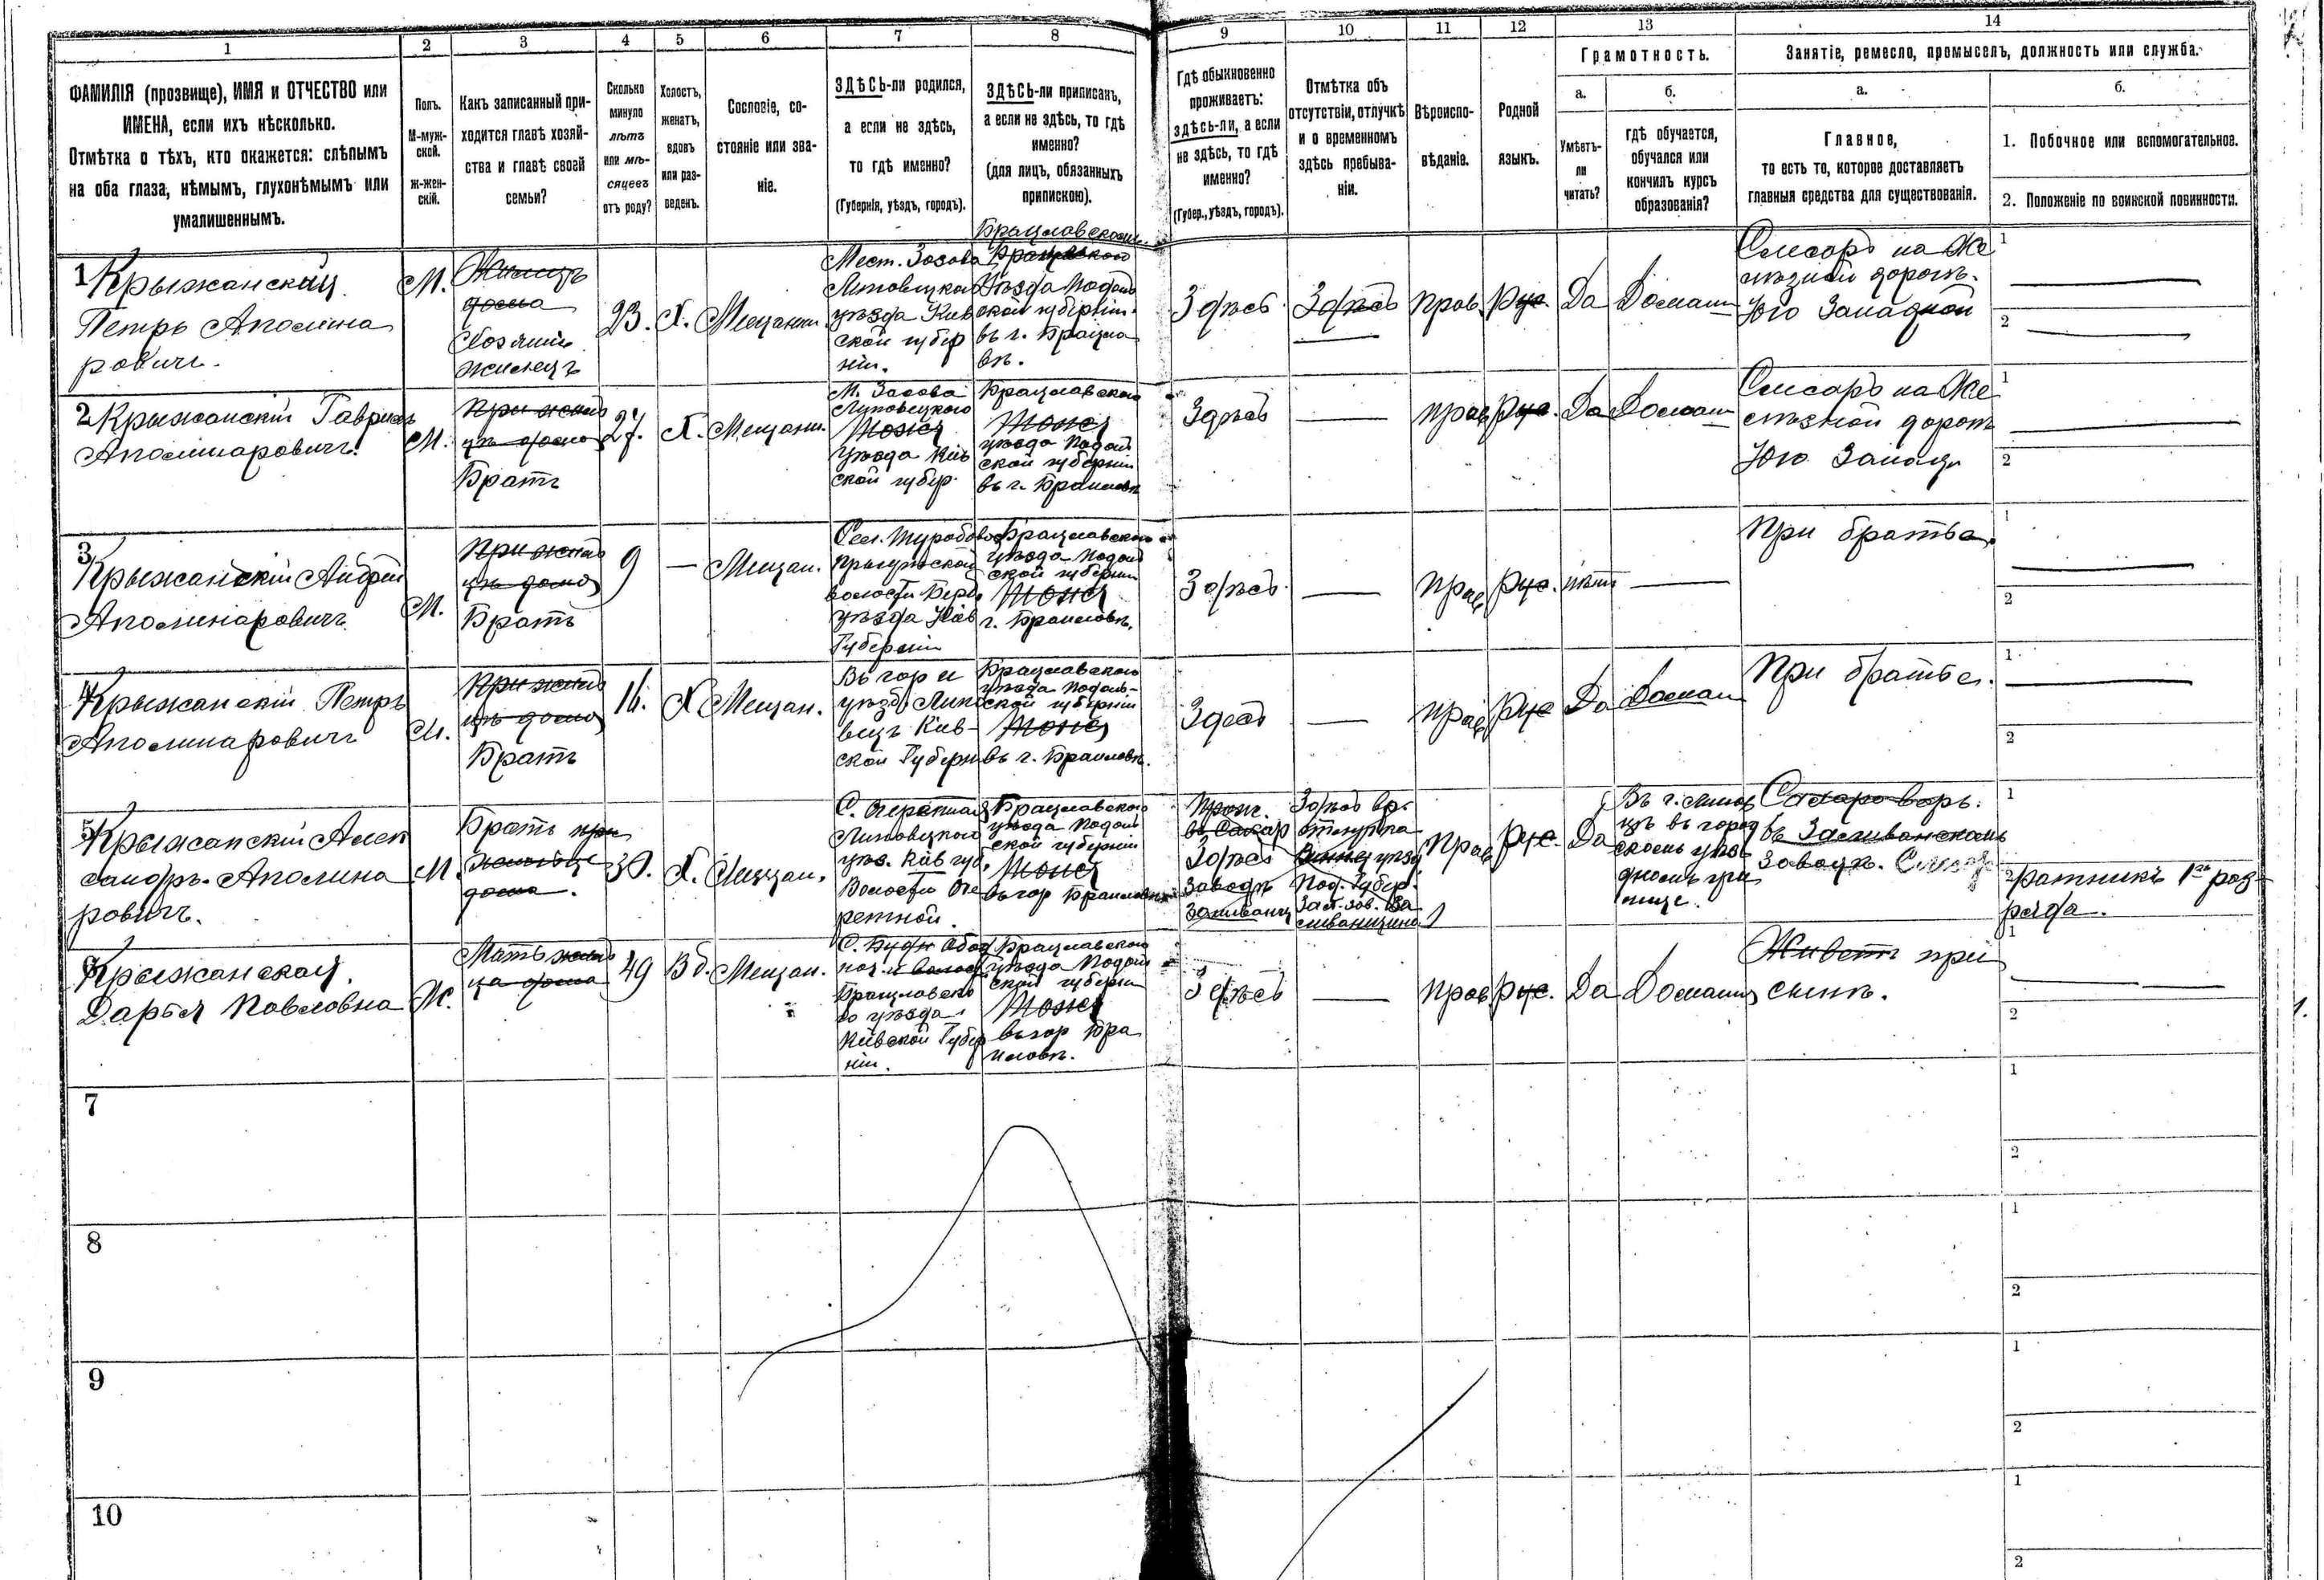 1
2
3
4
5
6
7
8
9
10
11
12
13
14
ФАМИЛІЯ (прозвище), ИМЯ и ОТЧЕСТВО или
ИМЕНА, если ихъ нѣсколько.
Отмѣтка о тѣхъ, кто окажется: слѣпымъ
на оба глаза, нѣмымъ, глухонѣмымъ или
умалишеннымъ.
Полъ.
М-муж-
ской.
ж-жен-
скій.
Какъ записанный при-
ходится главѣ хозяй-
ства и главѣ своей
семьи?
Сколько
минуло
лѣтъ
или мѣ-
сяцевъ
отъ роду?
Холостъ,
женатъ,
вдовъ
или раз-
веденъ.
Сословіе, со-
стояніе или зва-
ніе.
ЗДѢСЬ-ли родился,
а если не здѣсь,
то гдѣ именно?
(Губернія, уѣздъ, городъ).
ЗДѢСЬ-ли приписанъ,
а если не здѣсь, то гдѣ
именно?
(для лицъ, обязанныхъ
припискою).
Гдѣ обыкновенно
проживаетъ:
здѣсь-ли, а если
не здѣсь, то гдѣ
именно?
(Губер., уѣздъ, городъ).
Отмѣтка объ
отсутствіи, отлучкѣ
и о временномъ
здѣсь пребыва-
ніи.
Вѣроиспо-
вѣданіе.
Родной
языкъ.
Грамотность.
а.
Умѣетъ-
ли
читать?
б.
гдѣ обучается,
обучался или
кончилъ курсъ
образованія?
Занятіе, ремесло, промыселъ, должность или служба.
а.
Главное,
то есть то, которое доставляетъ
главныя средства для существованія.
б.
1. Побочное или вспомогательное.
2. Положеніе по воинской повинности.
1
Крыжанскій
Петръ Аполина
ровичъ.
М.
Жилецъ
дома
Хозяинъ
жилецъ
23.
Х.
Мѣщанин.
Мест. Зозова
Липовецкаго
уѣзда Кіев
ской губер
ніи.
Брацлавскаго
уѣзда Подоль
ской губерніи
въ г. Брацла
вѣ.
Здѣсь
Здѣсь
Прав.
Рус.
Да
Домашн
Слесарь на Же
лѣзной дорогѣ.
Юго Западной
1
2
2
Крыжанскій Гавриилъ
Аполинаровичъ.
М.
Братъ
27.
Х.
Мѣщанин.
М. Зозова
Липовецкаго
Тоже
уѣзда Кіев
ской губер.
Брацлавскаго
Тоже
уѣзда Подоль
ской губерніи
въ г. Браиловѣ
Здѣсь
Прав.
Рус.
Да
Домашн
Слесарь на Же
лѣзной дорогѣ
Юго Запад.
1
2
3
Крыжанскій Андрей
Аполинаровичъ
М.
Братъ
9
Мѣщан.
волости Берд.
уѣзда Кіев
Губерніи
Брацлавскаго
уѣзда Подоль
ской губерніи
Тоже
г. Браиловѣ.
Здѣсь
Прав.
Рус.
нѣтъ
При братьѣ.
1
2
4
Крыжанскій Петръ
Аполинаровичъ
М.
Братъ
16.
Х
Мѣщан.
Въ гор и
уѣздѣ Липо
вецъ Кіев-
ской Губерн
Брацлавскаго
уѣзда Подоль-
ской губерніи
Тоже
въ г. Браиловѣ.
Здѣсь
Прав.
Рус
Да
Домаш
При братьѣ.
1
2
5
Крыжанскій Алек
сандръ Аполина
ровичъ.
М.
Братъ при
жильцѣ
дома.
30.
Х.
Мѣщан.
Липовецкаго
уѣз. Кіев губ.
Волости Опе
ретной.
Брацлавскаго
уѣзда Подоль
ской губерніи
Тоже
въ гор Браиловѣ
Здѣсь
заводъ
Под. Губер.
Прав.
Рус.
Да
Въ г. Липов
цѣ въ город
скомъ уѣз
дномъ учи
лище.
Сахароваръ.
въ Заливанскомъ
Заводѣ.
1
2
Ратникъ 1го раз-
ряда.
6
Крыжанская
Дарья Павловна
Ж.
Мать жиль
ца дома
49
Вд.
Мѣщан.
Брацлавска
го уѣзда
Кіевской Губер
ніи.
Брацлавскаго
уѣзда Подоль
ской губерніи
Тоже
въ гор Бра
иловѣ.
Здѣсь
Прав.
Рус.
Да
Домашн
Живетъ при
сынѣ.
1
2
7
1
2
8
1
2
9
1
2
10
1
2